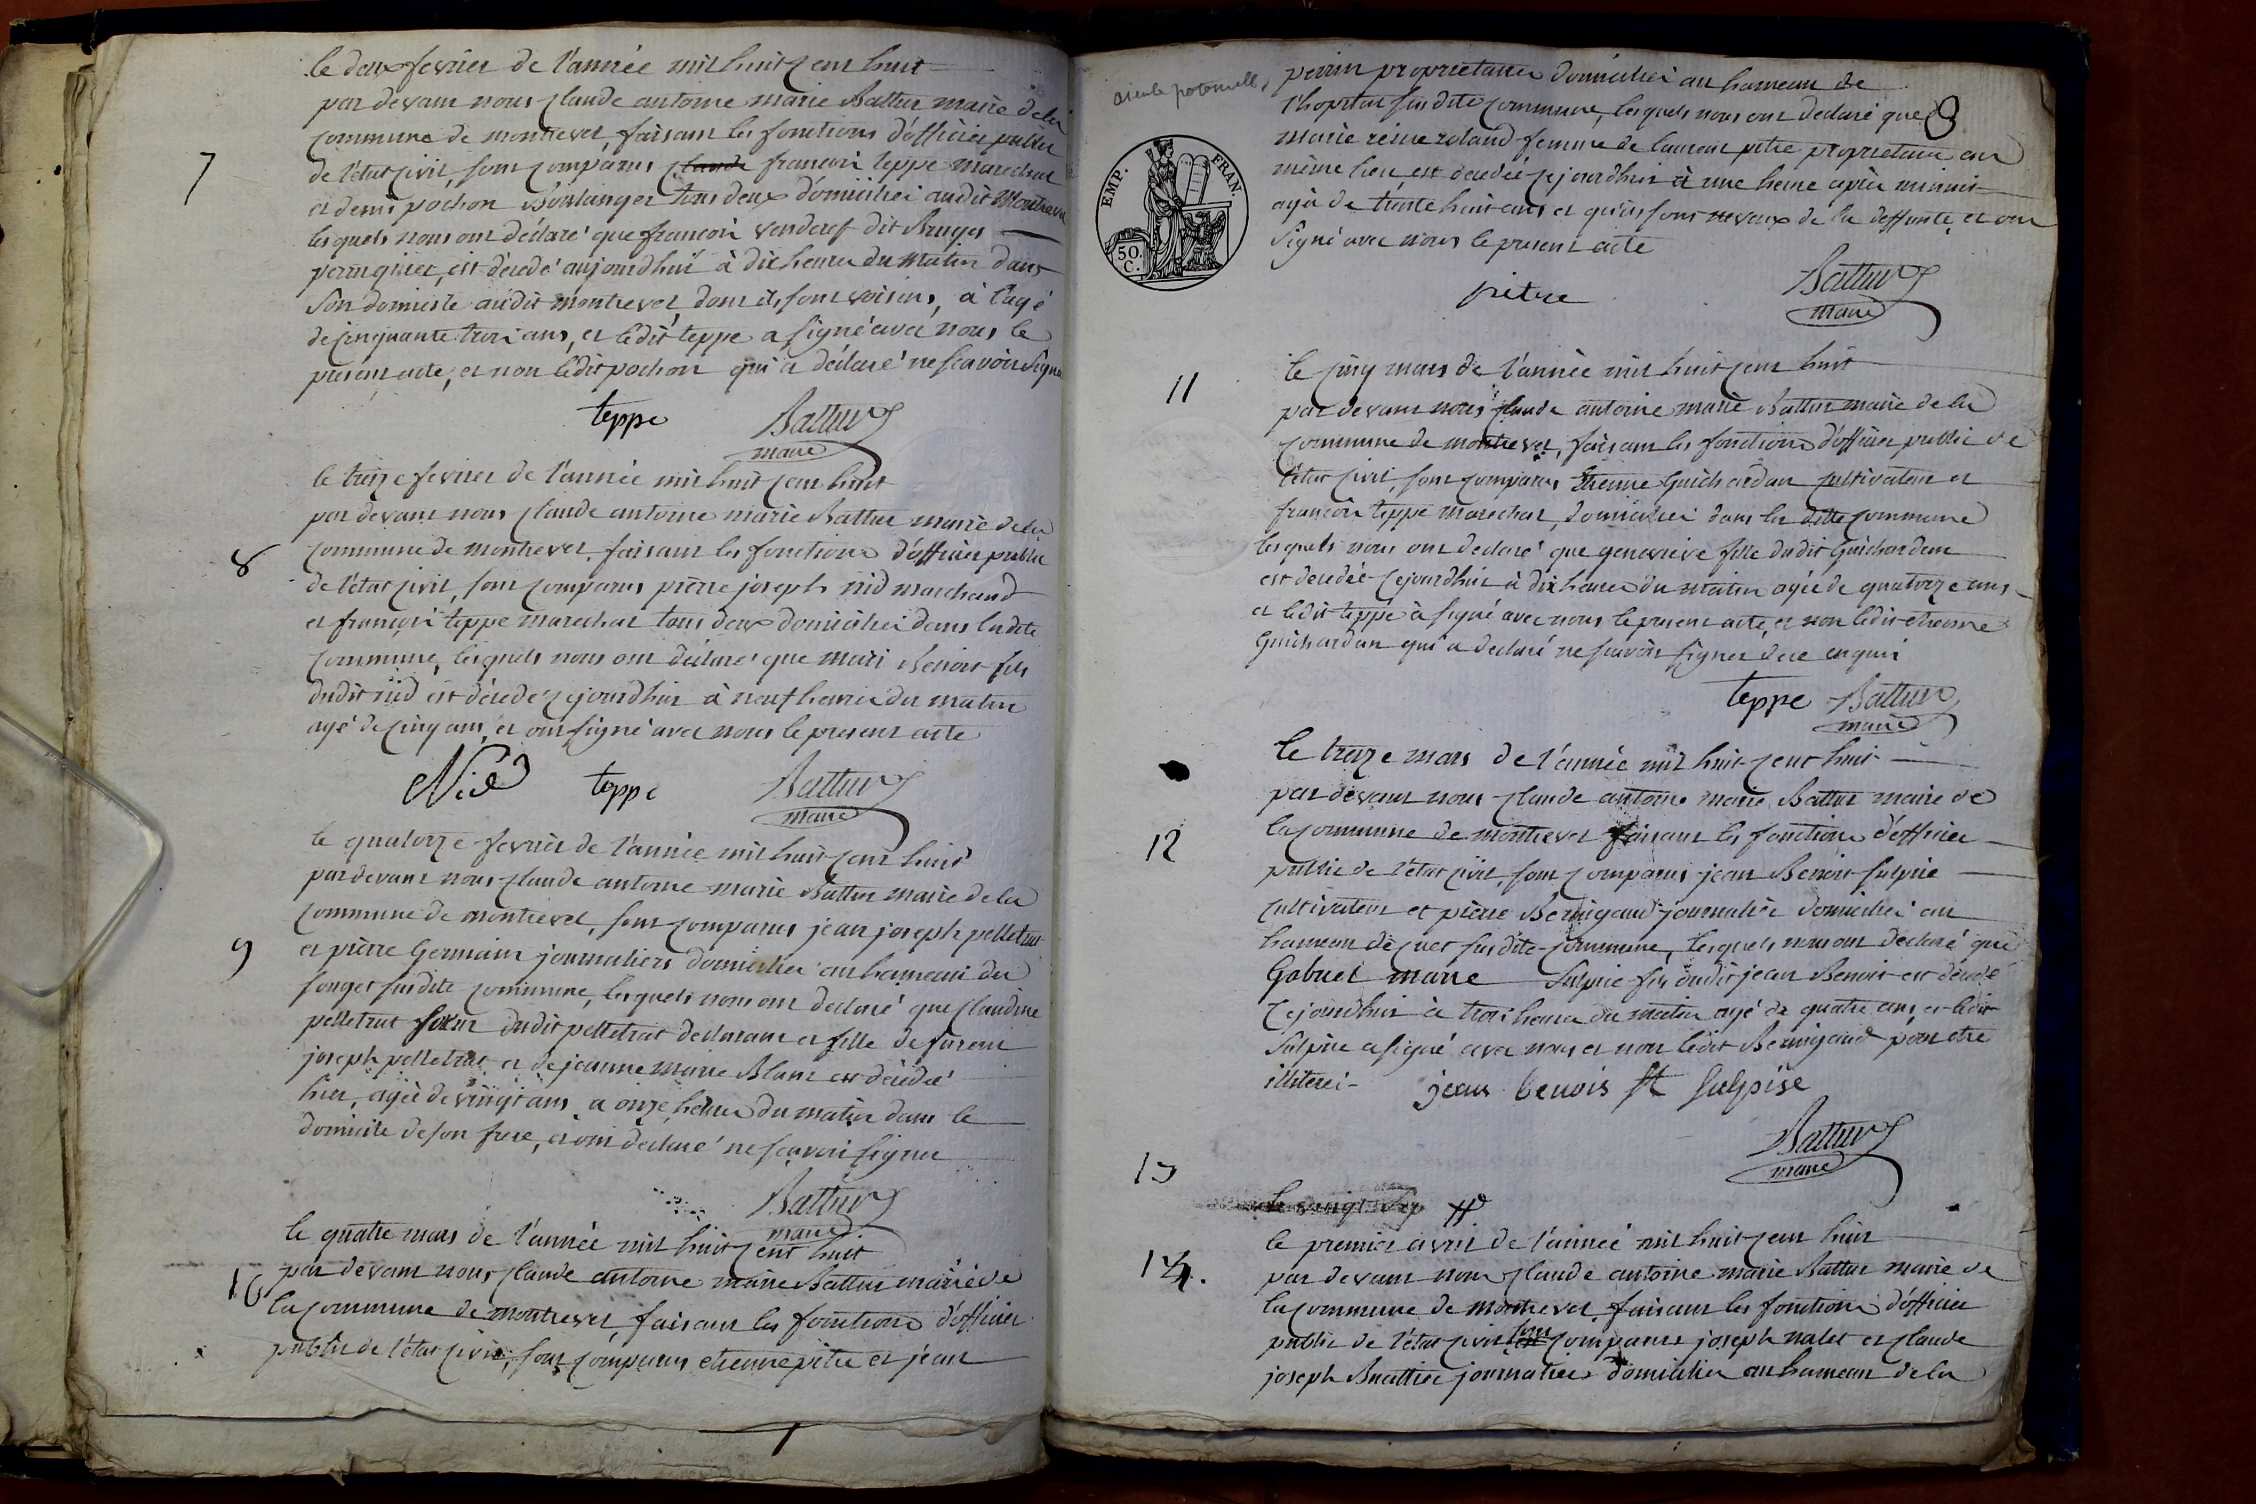 le deux fevrier de l'année mil huit cent huit
par devant nous Claude antoine marie Battur maire de la
commune de montrevel, faisant les fonctions d'officier public
7
de l'état civil, sont comparus claude francois teppe marechal
et denis pochon Boulanger tous deux domiciliés audit Montrevel
lesquels nous ont déclaré que francois vanderef dit Bruges
est décédé aujourdhui à dix heures du matin dans
son domicile audit montrevel, dont ils sont voisins, à l'agé
de cinquante trois ans, et ledit teppe a signé avec nous le
present acte, et non ledit pochon qui a déclaré ne scavoir signer
teppe Battur
maire
le treize fevrier de l'année mil huit cent huit
par devant nous Claude antoine marie Battur maire de la
8
commune de montrevel, faisant les fonctions d'officier public
de l'état civil, sont comparus pierre joseph nid marchand
et francois teppe marechal tous deux domiciliés dans ladite
commune, lesquels nous ont déclaré que mari Benoit fils
dudit nid est décédé cejourdhui à neuf heures du matin
agé de cinq ans, et ont signé avec nous le present acte
Nid teppe Battur
maire
le quatorze fevrier de l'année mil huit cent huit
par devant nous Claude antoine marie Battur maire de la
commune de montrevel, sont comparus jean joseph pelletrat
9
et pierre Germain journaliers domiciliés au hameau du
songet susdite commune, lesquels nous ont declaré que Claudine
pelletrat soeur dudit pelletrat declarant et fille de furent
joseph pelletrat et de jeanne marie Blanc est décédée
hier, agée de vingt ans, a onze heures du matin dans le
domicile de son frere, et ont declaré ne scavoir signer
Battur
maire
le quatre mars de l'année mil huit cent huit
par devant nous Claude antoine marie Battur maire de
10
la commune de montrevel, faisant les fonctions d'officier
public de l'état civil, sont comparus etienne pitre et jean
aieule paternelle
perrin proprietaires domiciliés au hameau de
l'hopital susdite commune, lesquels nous ont declaré que
8
marie reine roland femme de laurent pitre proprietaire au
même lieu, est decedée cejourdhui à une heure après minuit
agée de trente huit ans et qu'ils sont neveux de la deffunte, et ont
signé avec nous le present acte
EMP. FRAN.
50. C.
pitre Battur
maire
le cinq mars de l'année mil huit cent huit
11
par devant nous Claude antoine marie Battur maire de la
commune de montrevel, faisant les fonctions d'officier public de
l'état civil, sont comparus Etienne Guichardan cultivateur et
francois teppe marechal, domiciliés dans la dite commune
lesquels nous ont declaré que genevieve fille dudit Guichardan
est decedée cejourdhui à dix heures du matin agée de quatorze ans
et ledit teppe à signé avec nous le present acte, et non ledit etienne
Guichardan qui a declaré ne scavoir signer de ce enquis
teppe Battur
maire
le treize mars de l'année mil huit cent huit
par devant nous Claude antoine marie Battur maire de
12
la commune de montrevel faisant les fonctions d'officier
public de l'état civil, sont comparus jean Benoit sulpice
cultivateur et pierre Bernigaud journalier domiciliés au
hameau de cuet susdite commune, lesquels nous ont declaré que
Gabriel marie sulpice fils dudit jean Benoit est décédé
Cejourdhui à trois heures du matin agé de quatre ans, et ledit
Sulpice a signé avec nous et non ledit Bernigaud pour etre
illiteré
jean benois st sulpise
Battur
maire
13
le vingt sep
le premier avril de l'année mil huit cent huit
14.
par devant nous Claude antoine marie Battur maire de
la commune de montrevel, faisant les fonctions d'officier
public de l'état civil sont comparus joseph nalet et Claude
joseph Buattier journaliers domiciliés au hameau de la